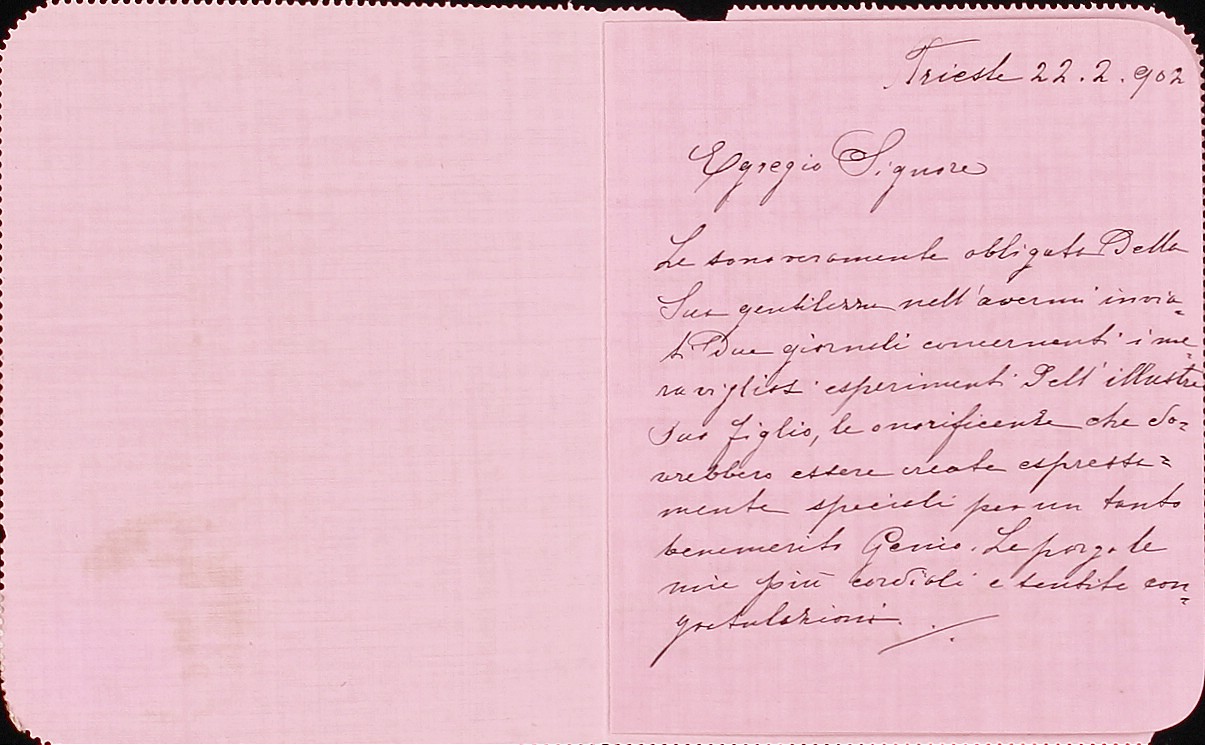 Trieste 22.2.902
Egregio Signore
Le sono veramente obligata Della
Sua gentilezza nell'avermi invia=
ti Due giornali concernenti i me=
ravigliosi esperimenti Dell'illustre
Suo figlio, le onorificenze che do=
vrebbero essere create espressa=
mente speciali per un tanto
benemerito Genio. Le porgo le
mie più cordiali e sentite con=
gratulazioni.